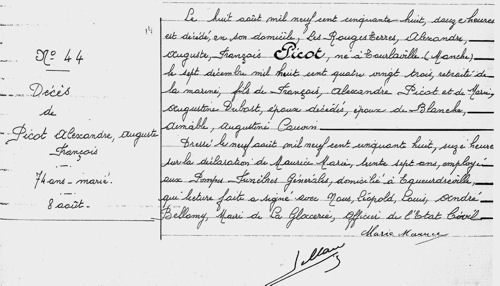 N° 44
Décès
de
Picot Alexandre, Auguste
François
74 ans - marié.
8 août.
Le huit août mil neuf cent cinquante huit, seize heures
est décédé, en son domicile, Les Rouges Terres, Alexandre,
Auguste, François Picot, né à Tourlaville (Manche)
le sept décembre mil huit cent quatre vingt trois, retraité de
la marine, fils de François, Alexandre Picot et de Marie,
Augustine Dubost, époux décédés, époux de Blanche,
Aimable, Augustine Cauvin
Dressé le neuf août mil neuf cent cinquante huit, seize heure
sur la déclaration de Maurice Marie, trente sept ans, employé
aux Pompes Funèbres Générales, domicilié à Equeurdreville,
qui lecture faite a signé avec Nous, Léopold, Louis, André
Bellamy, Maire de La Glacerie, Officier de l'Etat Civil
Marie Maurice